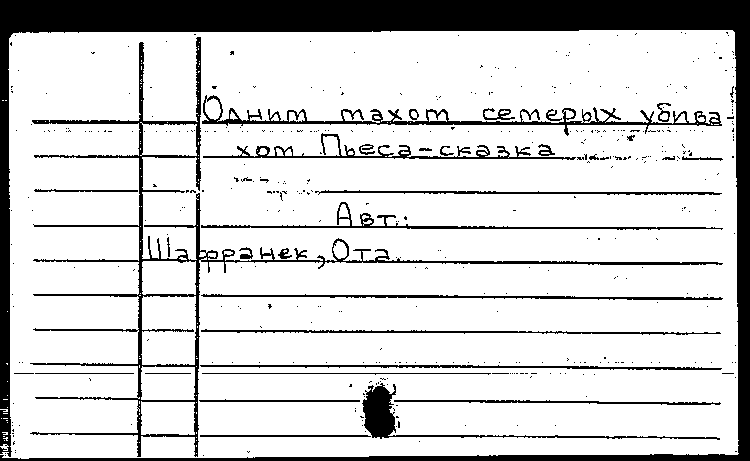 Одним махом семерых убива-
хом. Пьеса-сказка
Авт.:
Шафранек, Ота.